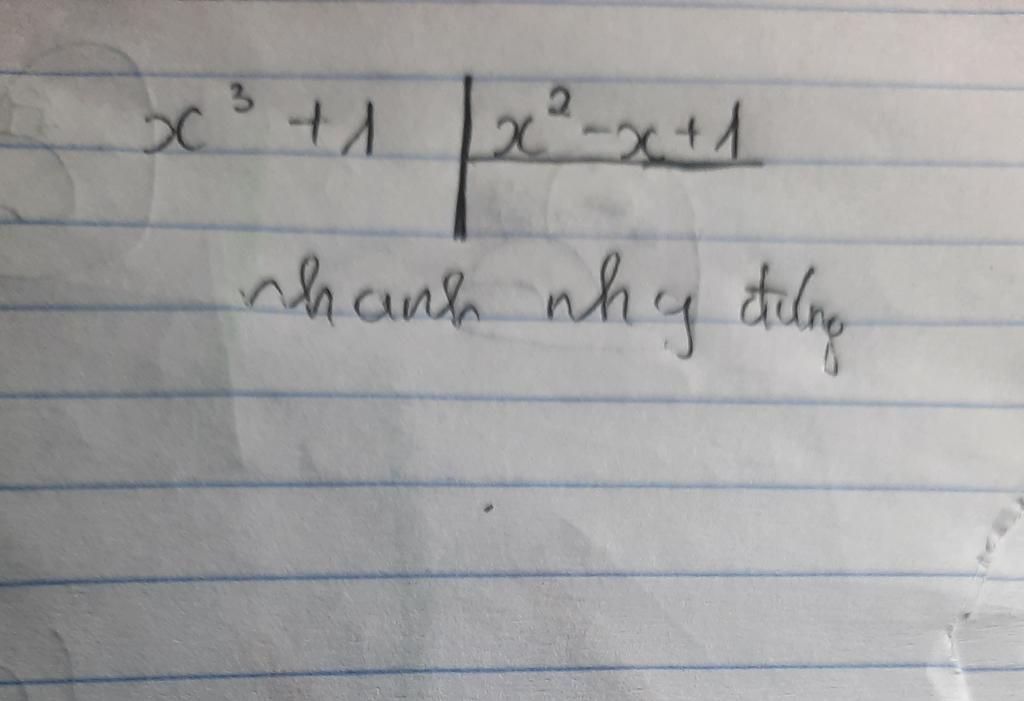 x³ + 1 | x² - x + 1
nhanh nhy đúng